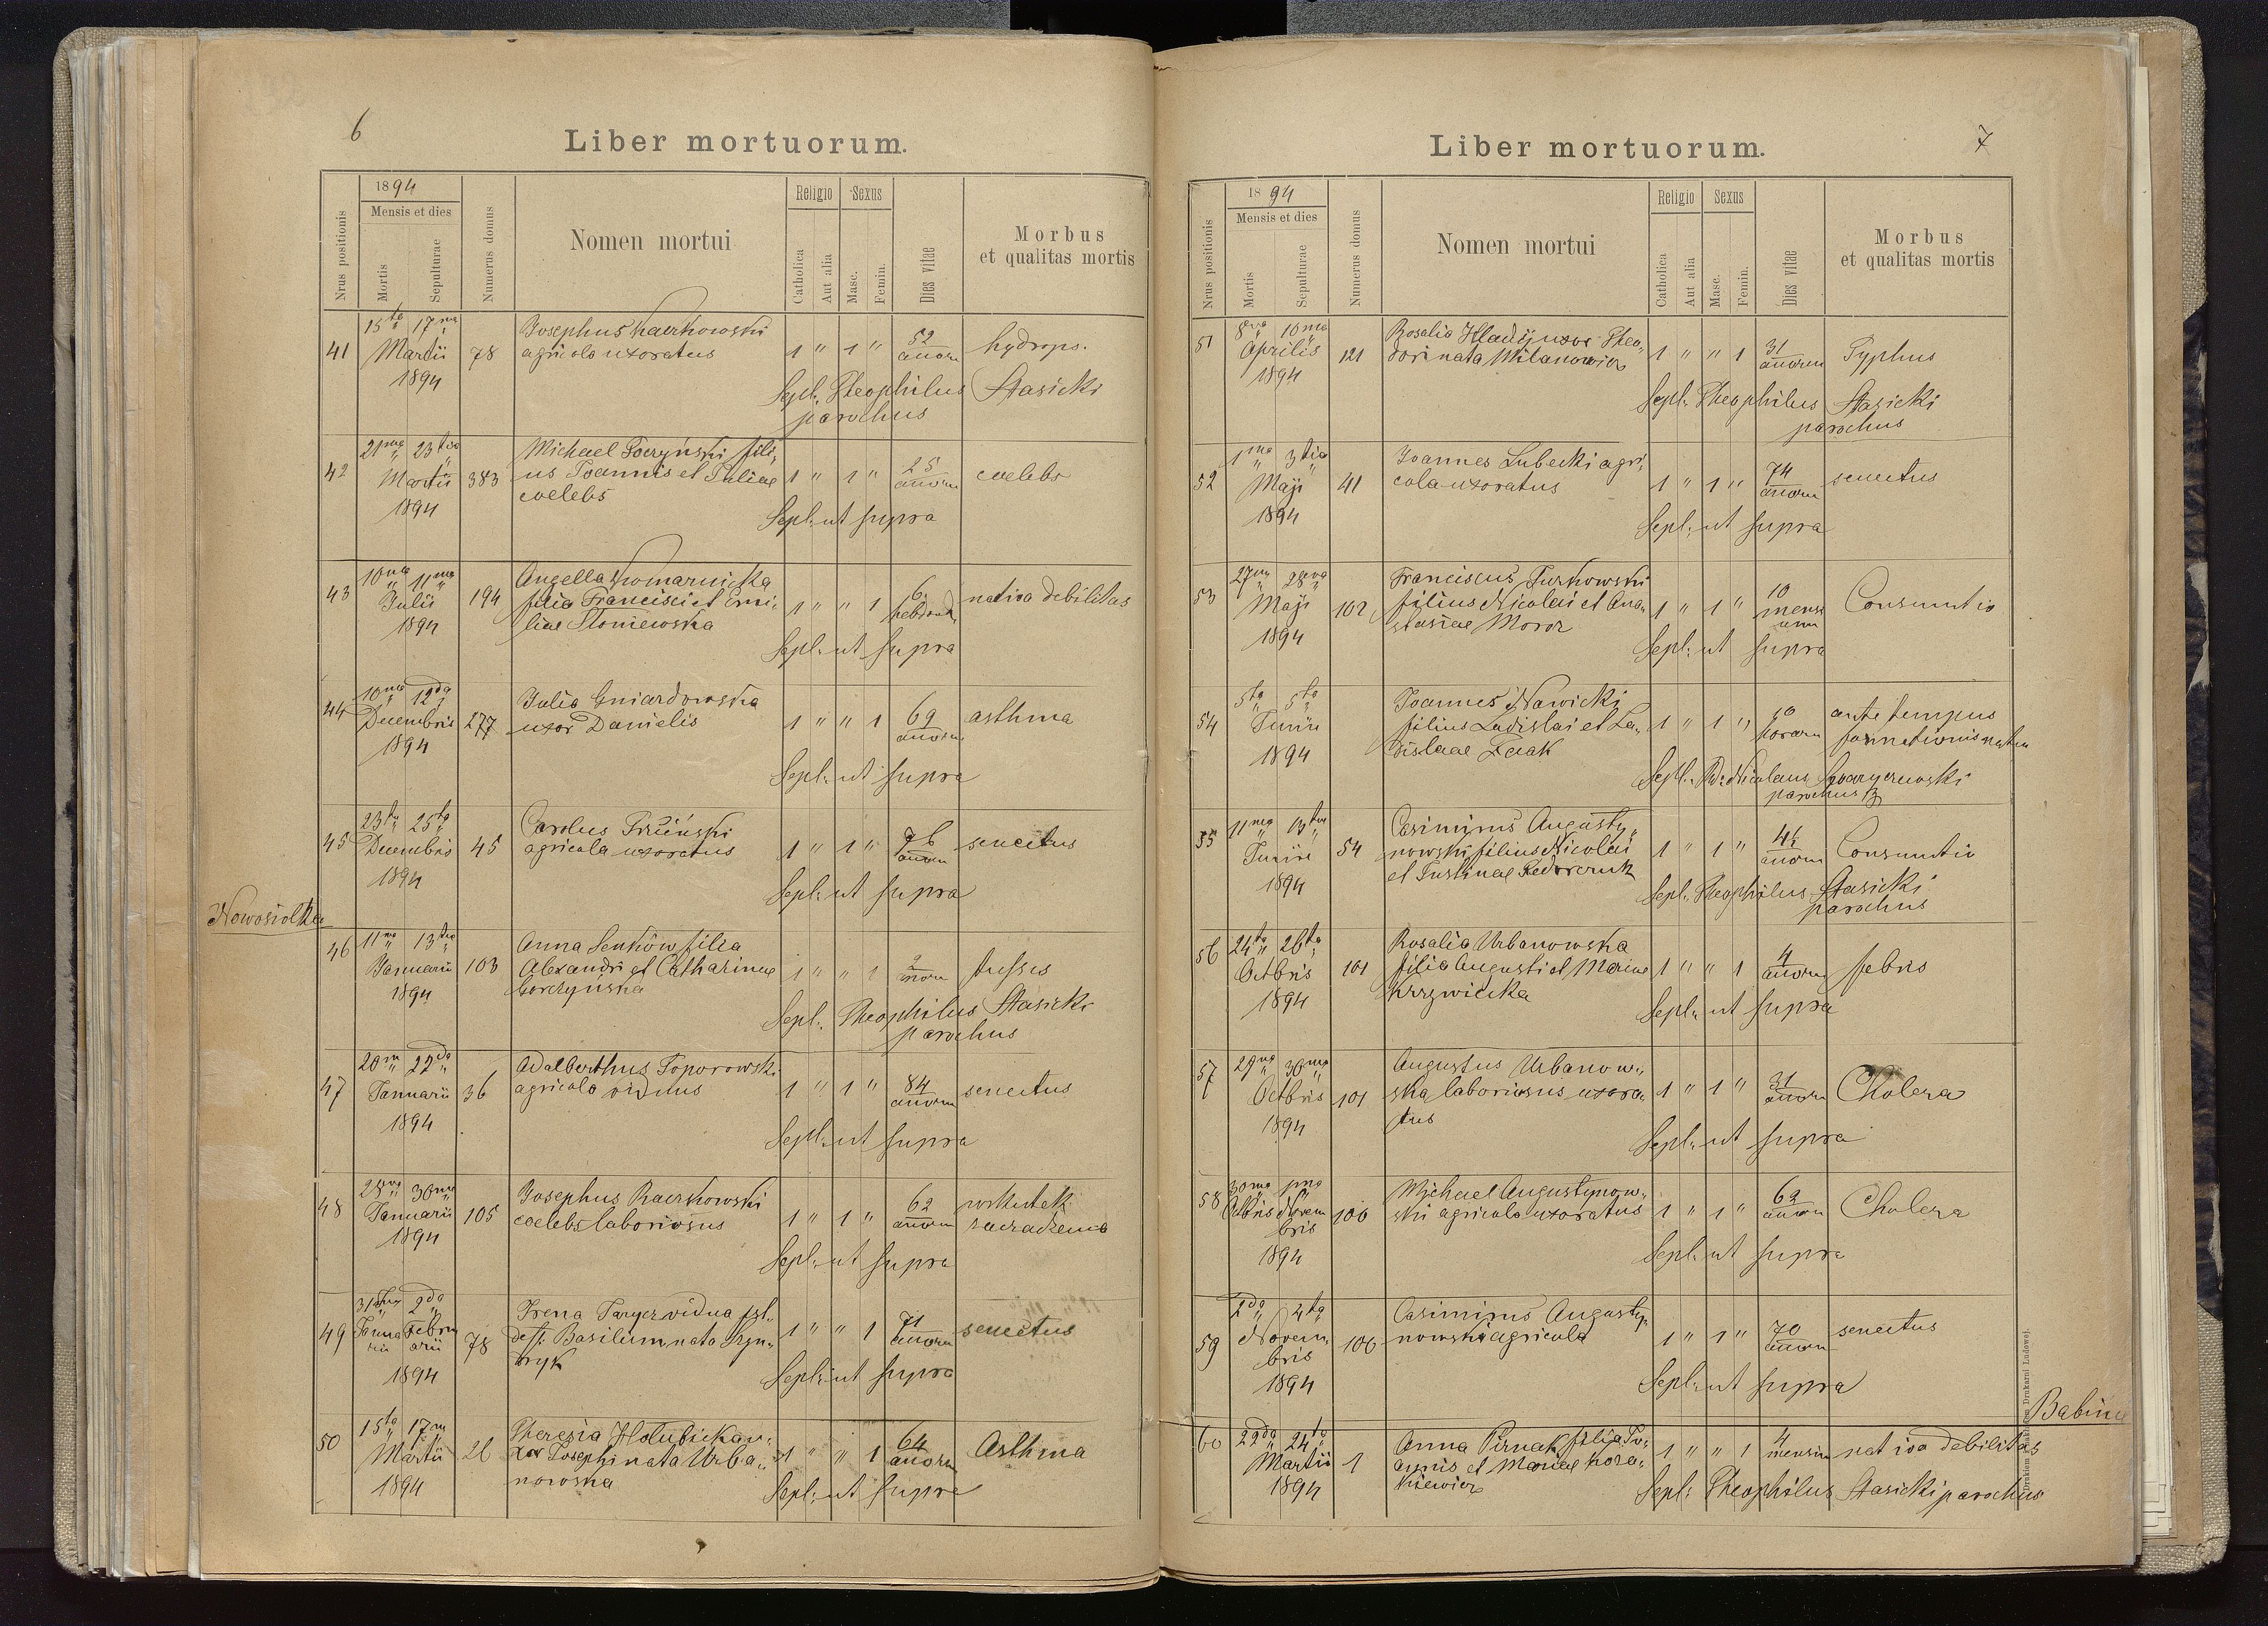 6
Liber mortuorum.
Nrus positionis
1894
Mensis et dies
Mortis
Sepulturae
Numerus domus
Nomen mortui
Religio
Catholica
Aut alia
Sexus
Masc.
Femin.
Dies vitae
Morbus
et qualitas mortis
41 15ta 17ma Martii 1894 78
Josephus Kaczkowski
agricola uxoratus
1 " 1 " 52 annorum hydrops.
Sepl: Theophilus Stasicki
parochus
42 21ma 23tia Martii 1894 383
Michael Goczyński fili,
us Joannis et Juliae
coelebs
1 " 1 " 25 annorum coelebs
Sepl: ut supra
43 10ma 11ma Julii 1894 194
Angella Komarnicka
filia Francisci et Emi,
liae Słoniewska
1 " " 1 6 hebdomad. nativa debilitas
Sepl: ut supra
44 10ma 12da Decembris 1894 277
Julia Gniazdowska
uxor Danielis
1 " " 1 69 annorum asthma
Sepl: ut supra
45 23tia 25ta Decembris 1894 45
Carolus
agricola uxoratus
1 " 1 " 76 annorum senectus
Sepl: ut supra
Nowosiolka
46 11ma 13tia Januarii 1894 103
Anna Senków filia
Alexandri et Catharinae
Gorczynska
1 " " 1 2 annorum tussis
Sepl: Theophilus Stasicki
parochus
47 20ma 22da Januarii 1894 36
Adalberthus Toporowski
agricola viduus
1 " 1 " 84 annorum senectus
Sepl: ut supra
48 28va 30ma Januarii 1894 105
Josephus Raczkowski
coelebs laboriosus
1 " 1 " 62 annorum wskutek
zaczadzenia
Sepl: ut supra
49 31ma 2da Januarii Februarii 1894 78
Irena vidua pst.
def: Basilium nata Szyn,
dryk
1 " " 1 71 annorum senectus
Sepl: ut supra
50 15ta 17ma Martii 1894 26
Theresia Holubicka u,
xor Josephi nata Urba,
nowska
1 " " 1 64 annorum Asthma
Sepl: ut supra
7
Liber mortuorum.
Nrus positionis
1894
Mensis et dies
Mortis
Sepulturae
Numerus domus
Nomen mortui
Religio
Catholica
Aut alia
Sexus
Masc.
Femin.
Dies vitae
Morbus
et qualitas mortis
51 8va 10ma Aprilis 1894 121
Rosalia Hladij uxor Theo,
dori nata Milanowicz
1 " " 1 31 annorum Typhus
Sepl: Theophilus Stasicki
parochus
52 1ma 3tia Maji 1894 41
Joannes Lubecki agri,
cola uxoratus
1 " 1 " 74 annorum senectus
Sepl: ut supra
53 27ma 28va Maji 1894 102
Franciscus Turkowski
filius Nicolai et Ana,
stasiae Moroz
1 " 1 " 10 mensium Consumtio
Sepl: ut supra
54 5ta 5ta Junii 1894
Joannes Nawicki
filius Ladislai et La,
dislaae
1 " 1 " 10 horarum ante tempus
formationis natu
Sepl: Rd: Nicolaus
parochus
55 11ma 13tia Junii 1894 54
Casimirus Augusty,
nowski filius Nicolai
et Justinae Fedorczuk
1 " 1 " annorum Consumtio
Sepl: Theophilus Stasicki
parochus
56 24ta 26ta Octbris 1894 101
Rosalia Urbanowska
filia Augusti et Mariae
Krzywicka
1 " " 1 4 annorum febris
Sepl: ut supra
57 29na 30ma Octbris 1894 101
Augustus Urbanow,
ska laboriosus uxora,
tus
1 " 1 " 31 annorum Cholera
Sepl: ut supra
58 30ma 1ma Octbris Novembris 1894 106
Michael Augustynow,
ski agricola uxoratus
1 " 1 " 62 annorum Cholera
Sepl: ut supra
59 2da 4ta Novembris 1894 106
Casimirus Augusty,
nowski agricola
1 " 1 " 70 annorum senectus
Sepl: ut supra
Babince
60 22da 24ta Martii 1894 1
Anna Pirnak filia Jo,
annis et Mariae Kora,
kiewicz
1 " " 1 4 mensium nativa debilitas
Sepl: Theophilus Stasicki parochus
Drukiem Drukarni Ludowej.